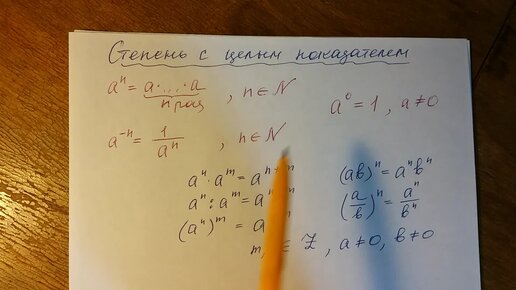 Степень с целым показателем
aⁿ = a·...·a , n ∈ N
n раз
a⁰ = 1 , a ≠ 0
a⁻ⁿ = 1/aⁿ , n ∈ N
aⁿ · aᵐ = aⁿ⁺ᵐ
(ab)ⁿ = aⁿbⁿ
aⁿ : aᵐ = aⁿ ᵐ
(a/b)ⁿ = aⁿ/bⁿ
(aⁿ)ᵐ = a ⁿ
m, ∈ Z , a ≠ 0, b ≠ 0